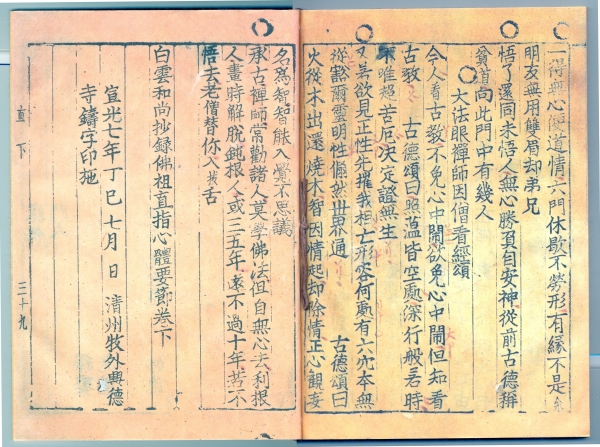 一得無心便道情六門休歇不勞形有緣不是余
朋友無用雙眉却弟兄
悟了還同未悟人無心勝負自安神從前古德稱
貧道向此門中有幾人
大法眼禪師因僧看經頌
今人看古教不免心中鬧欲免心中鬧但知看
古教 古德頌曰照蘊皆空處深行般若時
不唯超苦厄決定證無生
又 欲見正性先摧我相亡形容何處有六穴本無
從豁爾靈明性翛然世界通 古德頌曰
火從木出還燒木智因情起却除情正心觀妄
名爲智智能入覺不思議
承古禪師常勸諸人莫學佛法但自無心去利根
人晝時解脫鈍根人或三五年遠不過十年若不
悟去老僧替你入拔舌
白雲和尚抄錄佛祖直指心體要節卷下
宣光七年丁巳七月 日 清州牧外興德
寺鑄字印施
直下 三十九